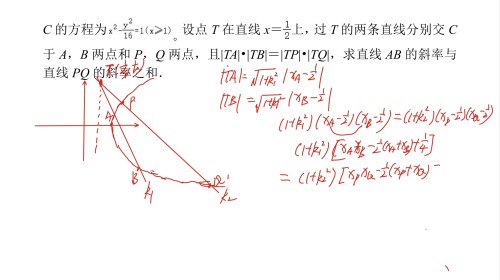 C 的方程为 x²-y²/16=1(x⩾1)。设点 T 在直线 x=1/2上，过 T 的两条直线分别交 C
于 A，B 两点和 P，Q 两点，且|TA|•|TB|=|TP|•|TQ|，求直线 AB 的斜率与
直线 PQ 的斜率之和．
|TA|=√(1+k₁²) |x_A-1/2|
|TB|=√(1+k₁²) |x_B-1/2|
(1+k₁²)(x_A-1/2)(x_B-1/2)=(1+k₂²)(x_P-1/2)(x_Q-1/2)
(1+k₁²)[x_A x_B-1/2(x_A+x_B)+1/4]
=(1+k₂²)[x_P x_Q-1/2(x_P+x_Q)
A
P
B
k₁
Q
k₂